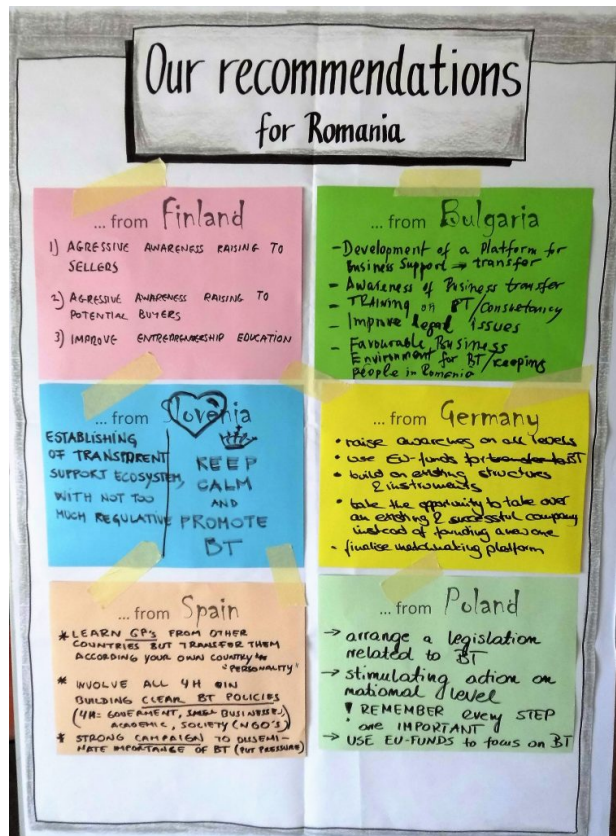 Our recommendations
for Romania
... from Finland
1) AGRESSIVE AWARENESS RAISING TO
SELLERS
2) AGRESSIVE AWARENESS RAISING TO
POTENTIAL BUYERS
3) IMPROVE ENTREPRENDERSHIP EDUCATION
... from Bulgaria
- Development of a Platform for
Business Support → transfer
- Awareness of Business transfer
- TRaining on BT/Consultancy
- Improve legal issues
- Favourable Business
Environment for BT/keeping
people in Romania
... from Slovenia
ESTABLISHING
OF TRANSPARENT
SUPPORT ECOSYSTEM,
WITH NOT TOO
MUCH REGULATIVE
KEEP
CALM
AND
PROMOTE
BT
... from Germany
• raise awareness on all levels
• use EU-funds for BT
• build on existing structures
& instruments
• take the opportunity to take over
an existing & successful company
instead of founding a new one
• finalise matchmaking platform
... from Spain
* LEARN GP's FROM OTHER
COUNTRIES BUT TRANSFER THEM
ACCORDING YOUR OWN COUNTRY
"PERSONALITY"
* INVOLVE ALL 4H IN
BUILDING CLEAR BT POLICIES
(4H: GOVERMENT, SMES BUSINESSES,
ACADEMIC, SOCIETY (NGO'S)
* STRONG CAMPAIGN TO DISSEMI-
NATE IMPORTANCE OF BT (PUT PRESSURE)
... from Poland
→ arrange a legislation
related to BT
→ stimulating action on
national level
! REMEMBER every STEP
are IMPORTANT
→ USE EU-FUNDS to focus on BT